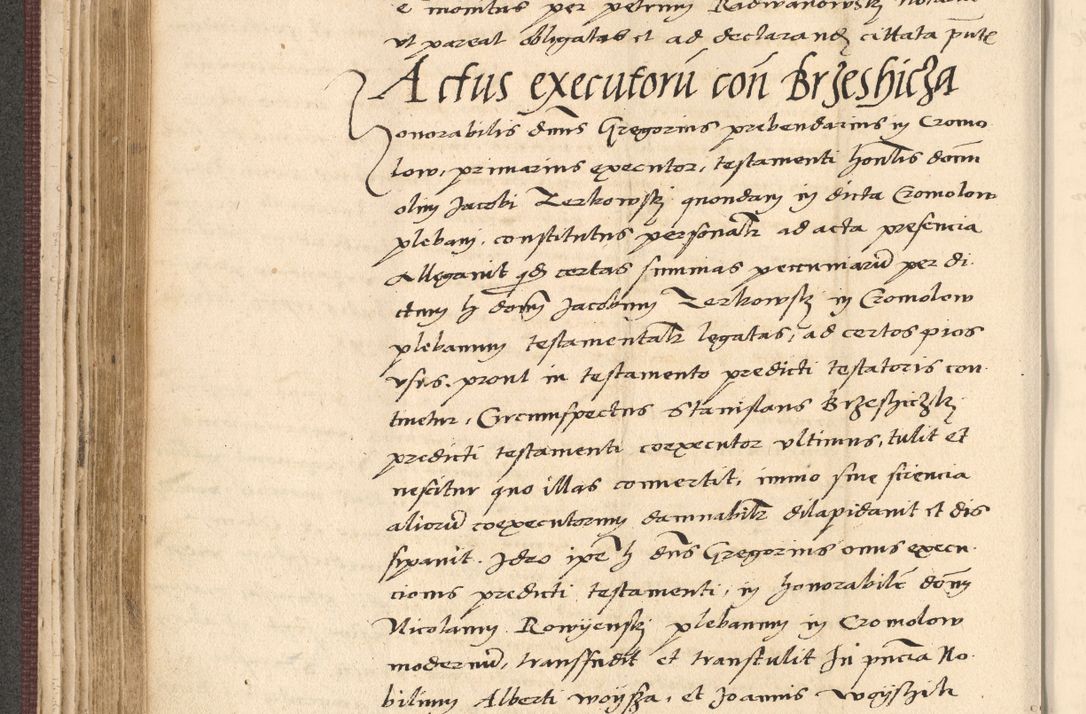 e monitus per petrum Radwanowskj notariu
ut pareat obligatas et ad declarandu cittata pnte
Actus executoru con Brzeshicza
Honorabilis dnus Gregorius prebendarius in Cromo
low, primarius executor, testamenti honlis domi
olim Jacobi Zerkowskj quondam in dicta Cromolow
plebani, constitutus personalr ad acta presencia
Allegavit qd certas summas pecuniaru per di
ctum h domi Jacobum Zerkowskj in Cromolow
plebanum testamentalr legatas, ad certos pios
usus, prout in testamento predicti testatoris con
tinetur, Circumspectus Stanislaus Brzeshiczkj
predicti testamenti coexecutor ultimus, tulit et
nescitur quo illas convertit, immo sine sciencia
alioru coexecutorum damnabilr dilapidavit et dis
sipavit. Ideo ipe h dns Gregorius onus execu
cionis predicti testamenti, in honorabile dom
Nicolaum Rowyenskj plebanum in Cromolow
modernu, transfudit et transtulit In pncia No
bilium Alberti woyssza, et Joannis Woyshik